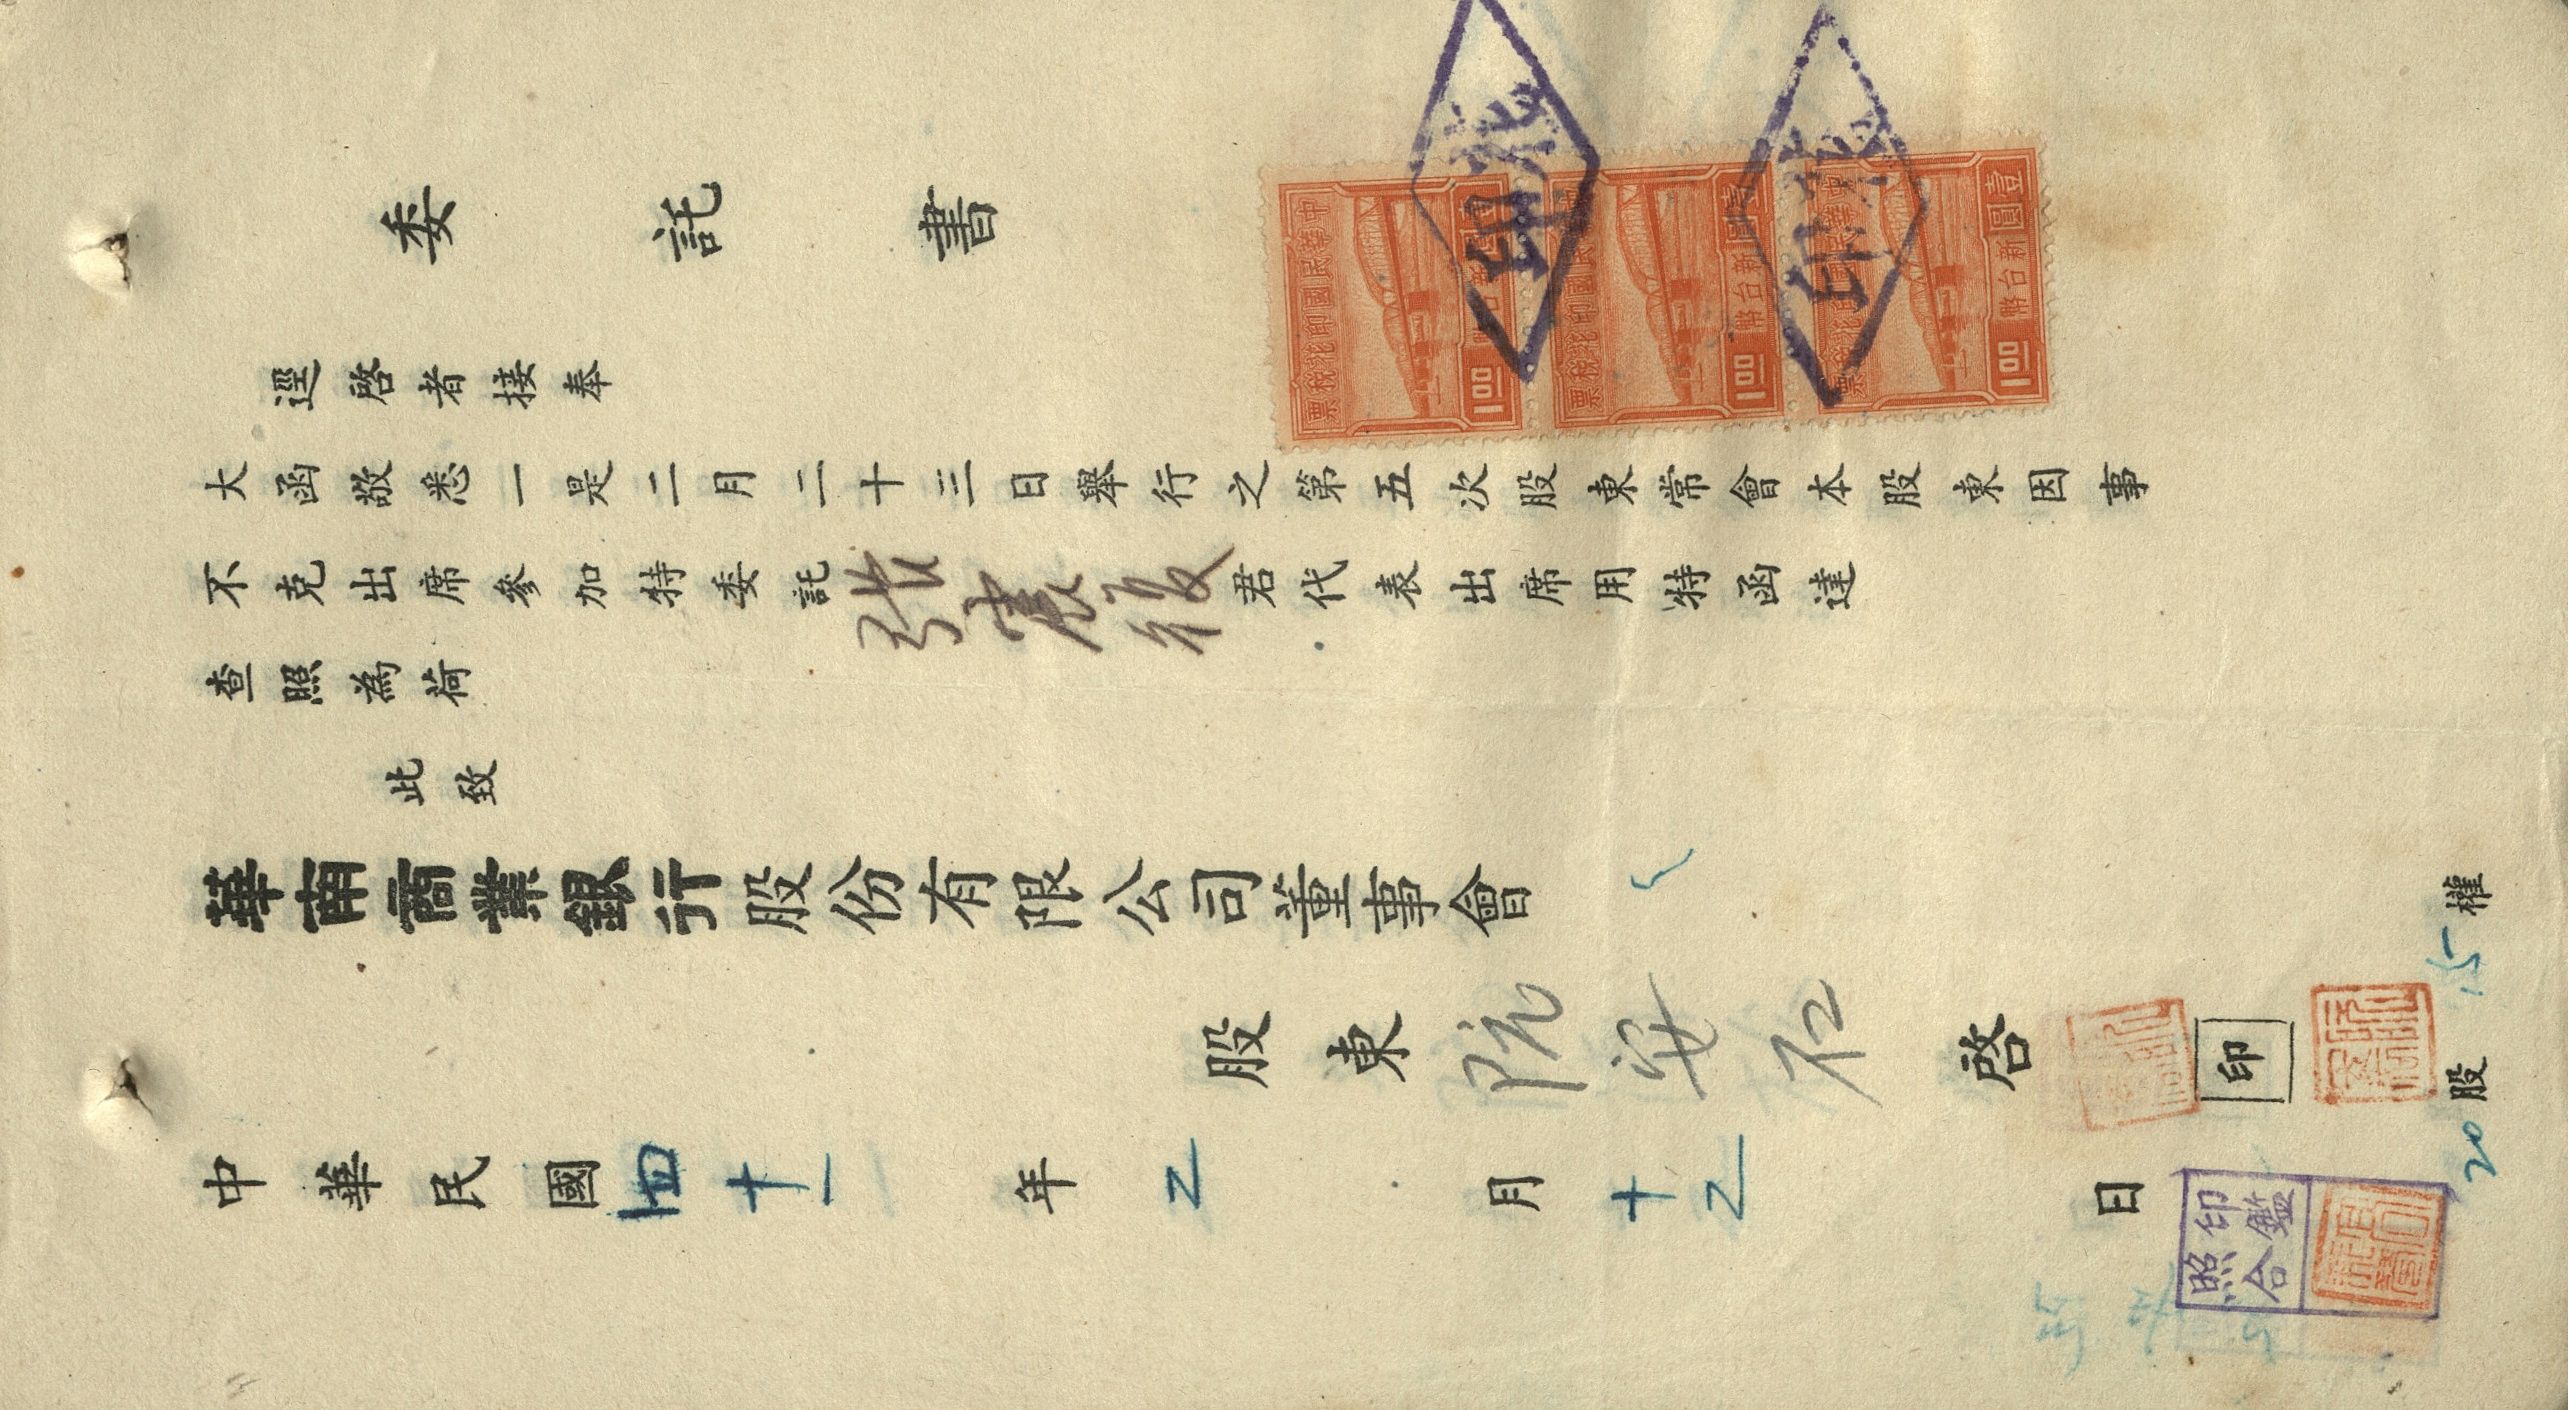 委託書
中華民國印花稅票
壹圓
新台幣
1.00
中華民國印花稅票
壹圓
新台幣
1.00
中華民國印花稅票
壹圓
新台幣
1.00
逕啓者接奉
大函敬悉一是二月二十三日舉行之第五次股東常會本股東因事
不克出席參加特委託張君代表出席用特函達
查照為荷
此致
華南商業銀行股份有限公司董事會
股東阮安啓 印
20股 15權
中華民國四十一年2月十2日
印鑑
照合